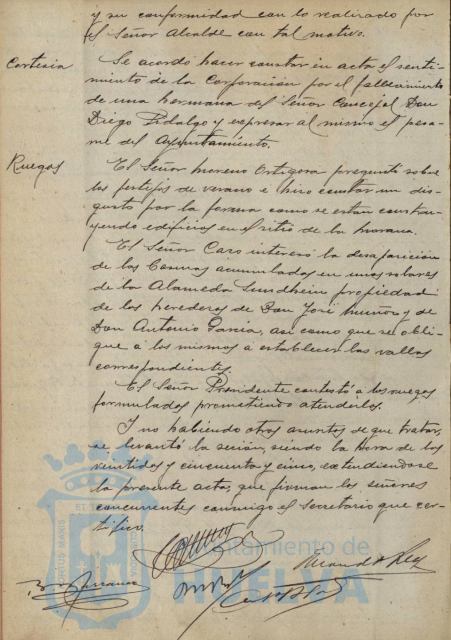 y su conformidad con lo realizado por
el Señor Alcalde con tal motivo.
Cortesia
Se acordó hacer constar en acta el senti-
miento de la Corporación por el fallecimiento
de una hermana del Señor Concejal Don
Diego Fidalgo y expresar al mismo el pesa-
me del Ayuntamiento.
Ruegos
El Señor Moreno Ortigosa preguntó sobre
los festejos de verano é hizo constar un dis-
gusto por la forma como se estan constru-
yendo edificios en el sitio de la
El Señor Caro interesó la desaparición
de las basuras acumuladas en unos solares
de la Alameda Sundheim propiedad
de los herederos de Don José Muñoz y de
Don Antonio Garcia, asi como que se obli-
gue a los mismos a establecer las vallas
correspondientes.
El Señor Presidente contestó a los ruegos
formulados prometiendo atenderlos.
Y no habiendo otros asuntos de que tratar,
se levantó la sesión, siendo la hora de las
veintidos y cincuenta y cinco, extendiendose
la presente acta, que firman los señores
concurrentes conmigo el Secretario que cer-
tifico.
Ayuntamiento de
HUELVA